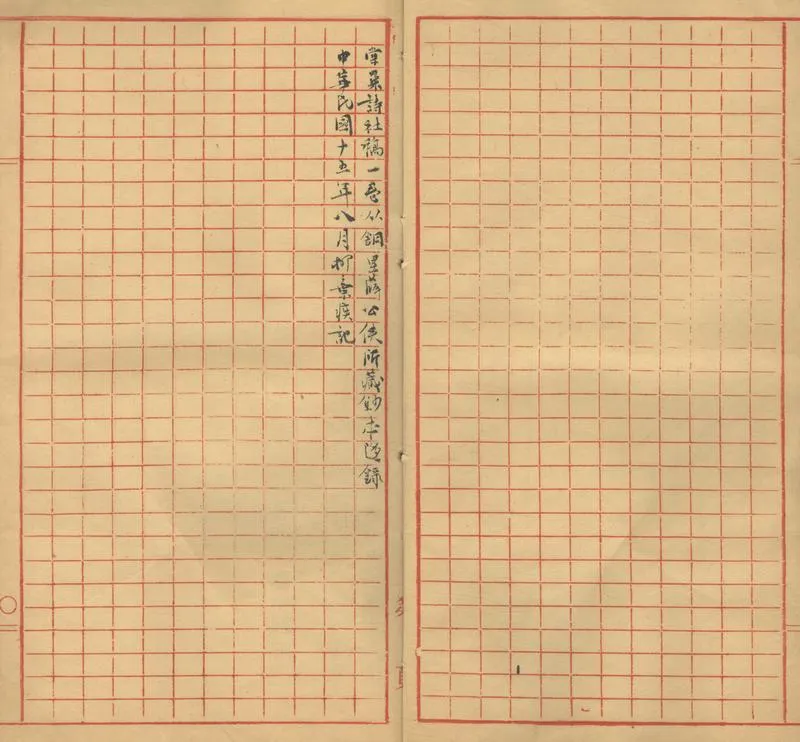 棠巢詩社稿一卷从銅里薛公俠所藏鈔本迻錄
中華民國十五年八月柳棄疾記